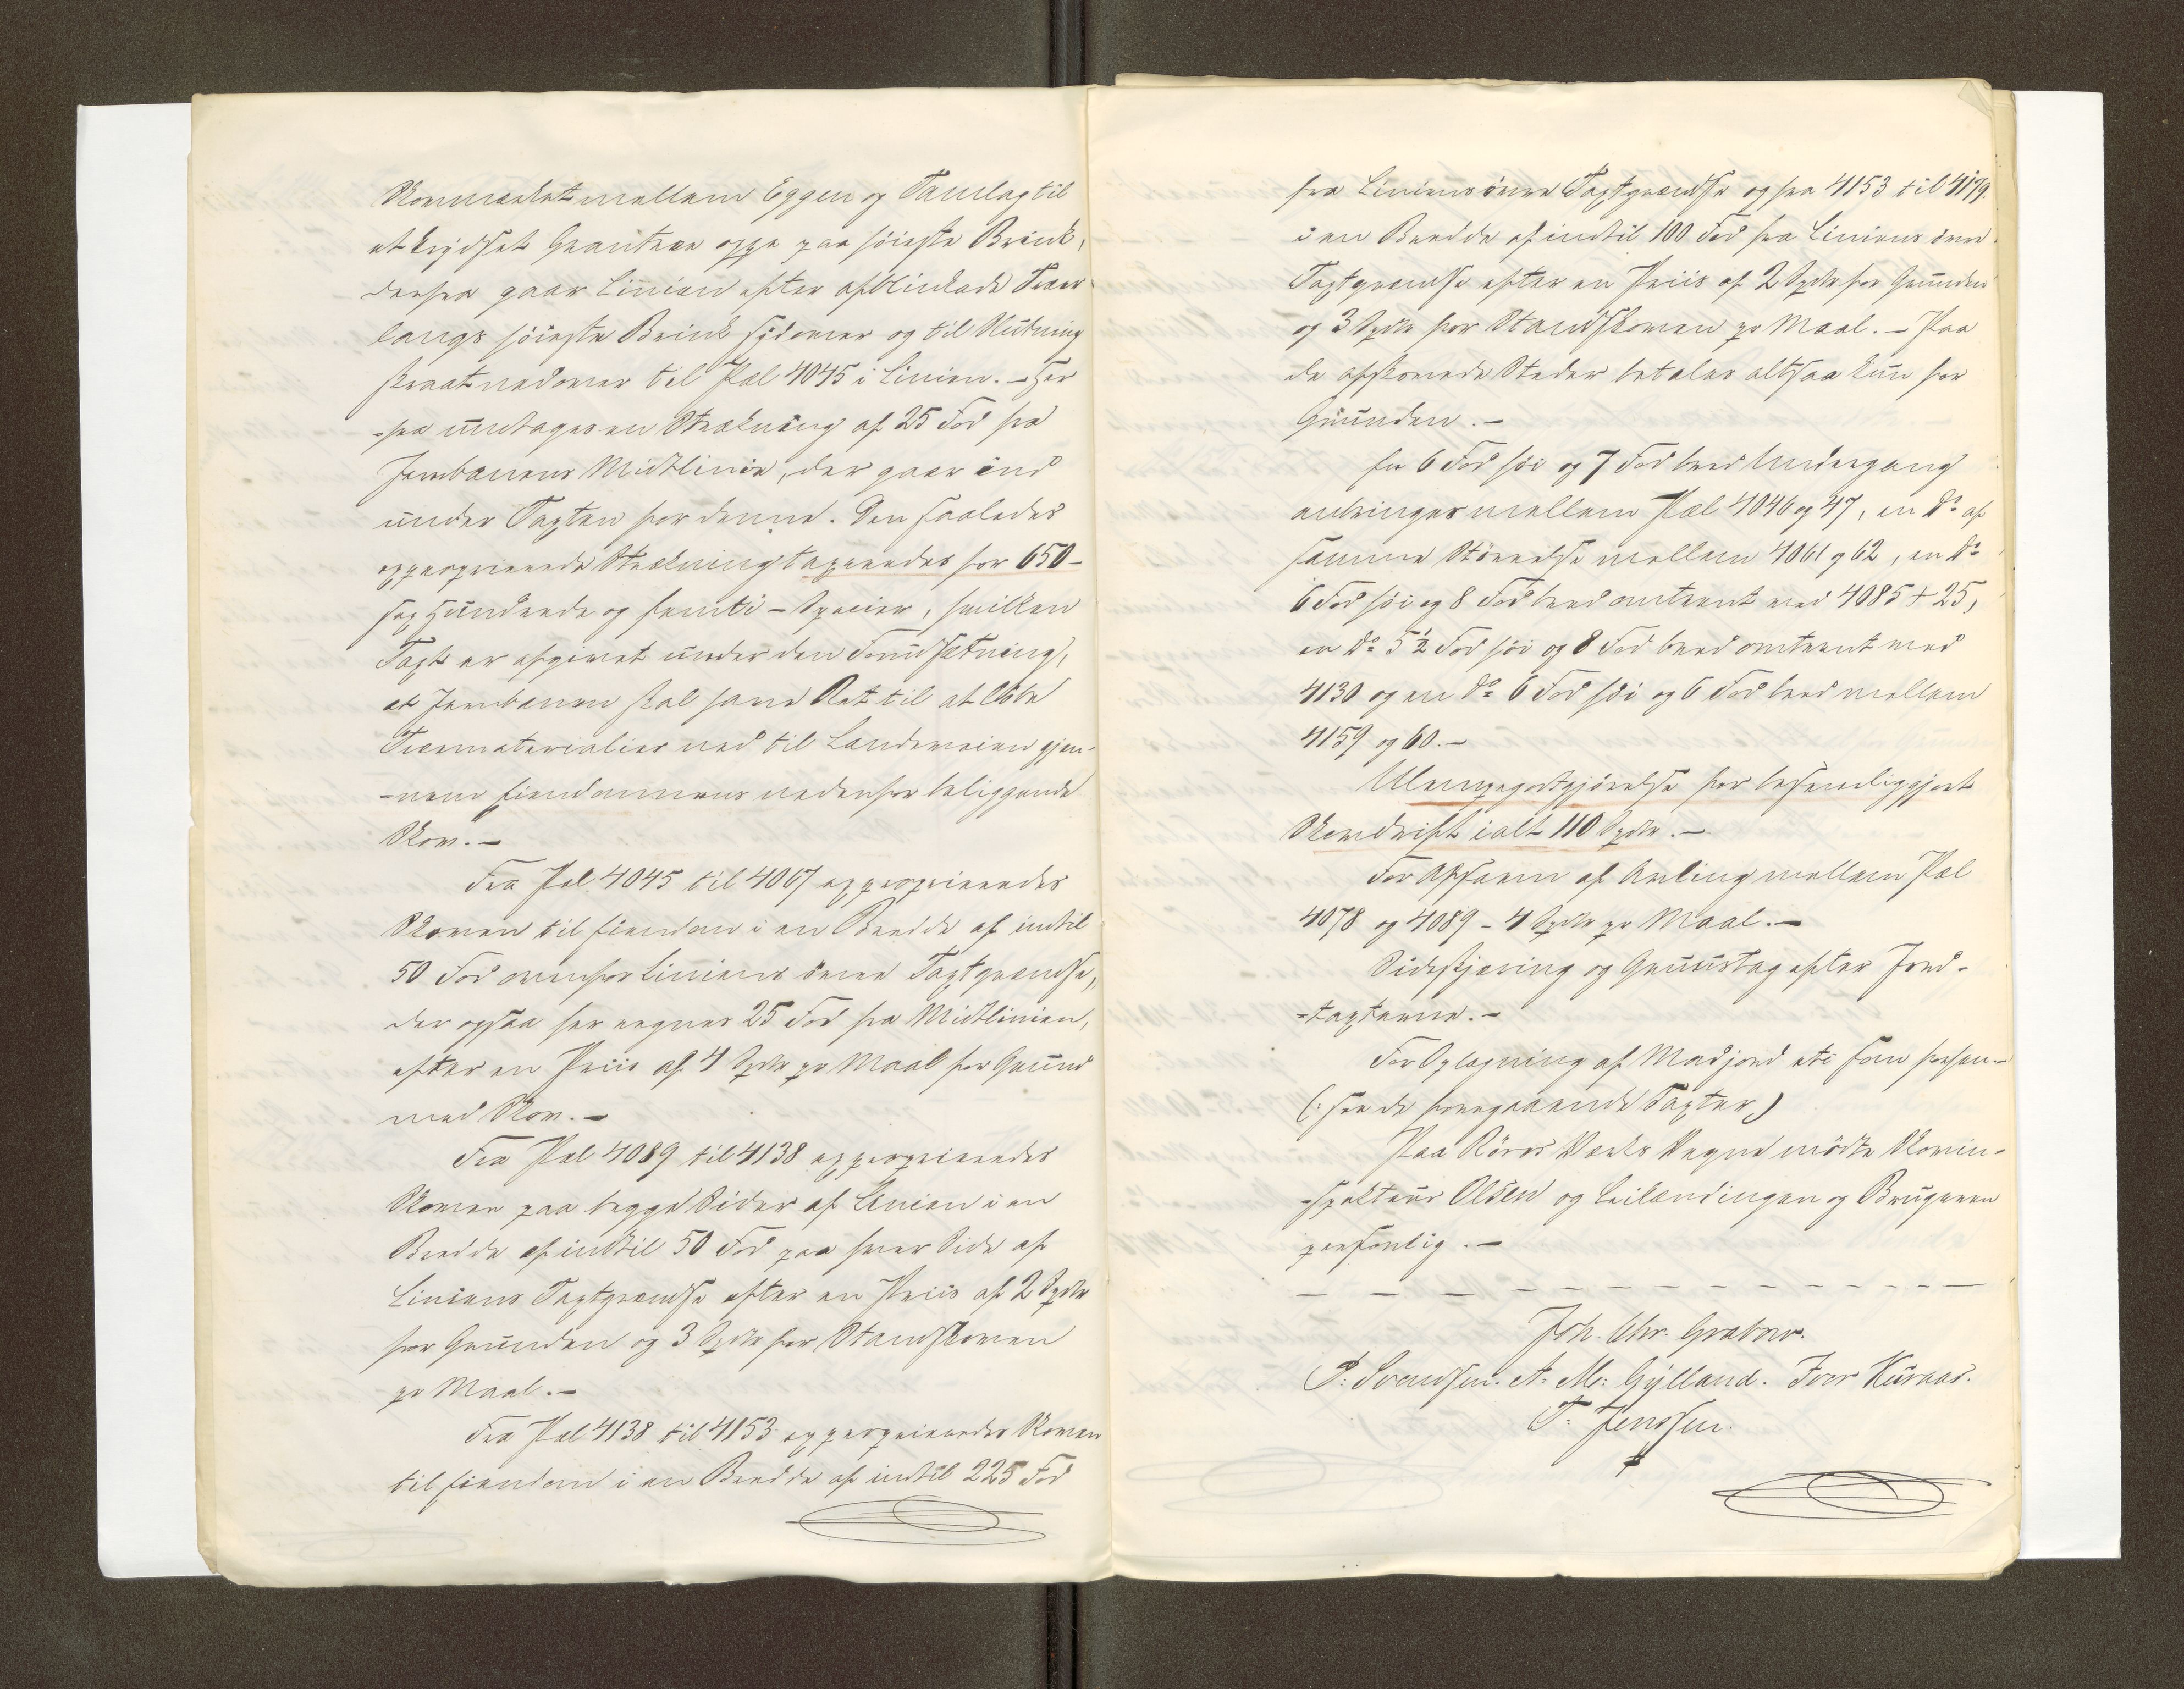 Skovmærket mellem Eggen og Tamlag til
et krydset Grantræ oppe paa høieste Brink,
derfra gaar Linien efter afblinkede Træer
langs høieste Brink sydover og til Slutning
skraat nedover til Pæl 4045 i Linien. – Her
-fra undtages en Strækning af 25 Fod fra
Jernbanens Midtlinie, der gaar ind
under Taxten for denne. Den saaledes
expropierede Strækning taxeredes for 650 –
sex Hundrede og femti – Specier, hvilken
Taxt er afgivet under den Forudsætning,
at Jernbanen skal have Ret til at löbe
Træmaterialier ned til Landeveien gjen-
-nem Eiendommens nedenfor beliggende
Skov. –
Fra Pæl 4045 til 4067 exproprieredes
Skoven til Eiendom i en Bredde af indtil
50 Fod ovenfor Liniens övre Taxtgrændse,
der ogsaa her regnes 25 Fod fra Midtlinien,
efter en Priis af 4 Spdlr pr Maal for Grund
med Skov. –
Fra Pæl 4089 til 4138 exproprieredes
Skoven paa begge Sider af Linien i en
Bredde af indtil 50 Fod paa hver Side af
Liniens Taxtgrændse efter en Priis af 2 Spdlr
for Grunden og 3 Spdlr for Standskoven
pr Maal. –
Fra Pæl 4138 til 4153 exproprieredes Skoven
til Eiendom i en Bredde af indtil 225 Fod
fra Liniens övre Taxtgrændse og fra 4153 til 4179.
i en Bredde af indtil 100 Fod fra Liniens övre
Taxtgrændse efter en Priis af 2 Spdlr for Grunden
og 3 Spdlr for Standskoven pr Maal. – Paa
de afskovede Steder betales altsaa kun for
Grunden. –
En 6 Fod höi og 7 Fod bred Undergang
anbringes mellem Pæl 4046 og 47, en Do af
samme Störrelse mellem 4061 og 62, en Do
6 Fod höi og 8 Fod bred omtrent ved 4085 + 25,
en Do 5 1/2 Fod höi og 8 Fod bred omtrent ved
4130 og en do 6 Fod höi og 6 Fod bred mellem
4159 og 60. –
Ulempegodtgjörelse for besværliggjort
Skovdrift ialt 110 Spdlr. –
For Afsavn af Avling mellem Pæl
4078 og 4089 – 4 Spdlr pr Maal. –
Sideskjæring og Gruustag efter Jord-
-taxterne. –
For Oplægning af Madjord uti
(: see de foregaaende Taxter)
Paa Röros Værks Vegne mödte Skovin-
-spekteur Olsen og Leilændingen og Brugeren
personlig. –
Joh. Chr. Grabow.
P: Svendsen. A: M: Gylland. Iver Kuraas.
T. Jenssen.